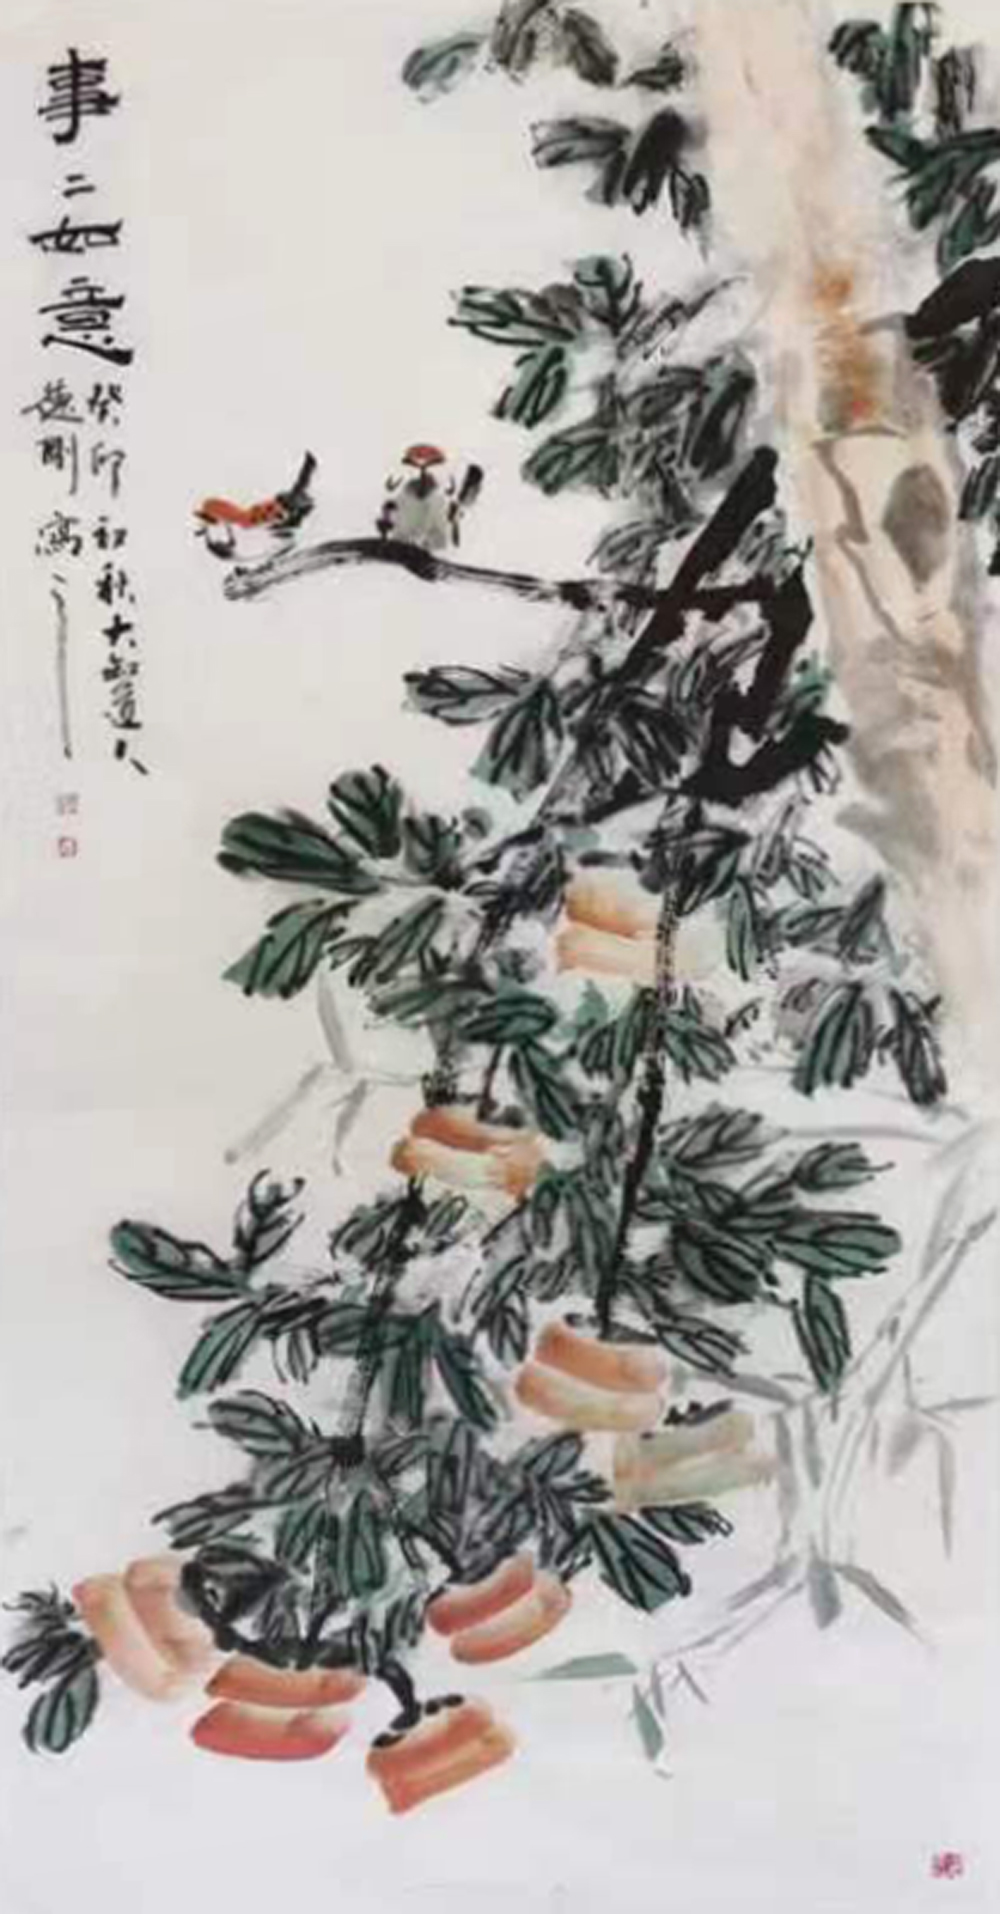 事二如意
癸卯初秋大知道人
德刚写